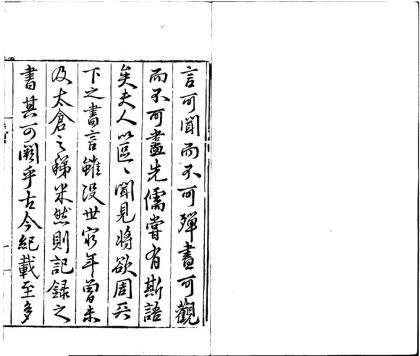 言可聞而不可殫書可觀
而不可盡先儒嘗有斯語
矣夫人以區〻聞見將欲周天
下之書言雖沒世窮年曾未
及太倉之稊米然則記錄之
書其可闕乎古今紀載至多